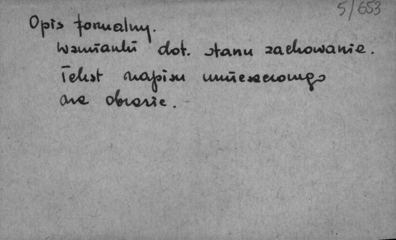 5/653
Opis formalny.
Wzmianki dot. stanu zachowania.
Tekst napisu umieszczonego
na obrazie.